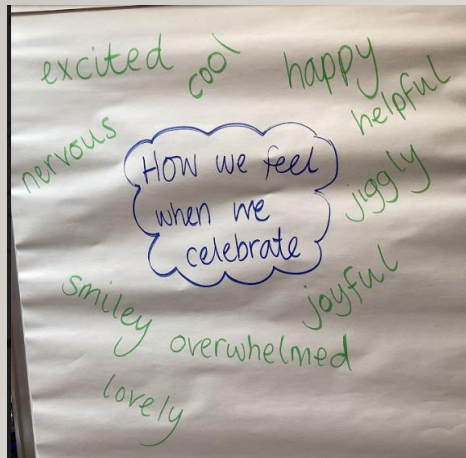 excited
cool
happy
helpful
nervous
How we feel
when we
celebrate
jiggly
smiley
joyful
overwhelmed
lovely